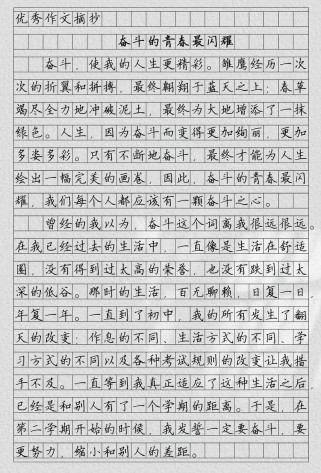 优秀作文摘抄
奋斗的青春最闪耀
奋斗，使我的人生更精彩。雏鹰经历一次
次的折翼和拼搏，最终翱翔于蓝天之上；春草
竭尽全力地冲破泥土，最终为大地增添了一抹
绿色。人生，因为奋斗而变得更加绚丽，更加
多姿多彩。只有不断地奋斗，最终才能为人生
绘出一幅完美的画卷，因此，奋斗的青春最闪
耀，我们每个人都应该有一颗奋斗之心。
曾经的我以为，奋斗这个词离我很远很远。
在我已经过去的生活中，一直像是生活在舒适
圈，没有得到过太高的荣誉，也没有跌到过太
深的低谷。那时的生活，百无聊赖，日复一日，
年复一年。一直到了初中，我的所有发生了翻
天的改变：作息的不同、生活方式的不同、学
习方式的不同以及各种考试规则的改变让我措
手不及。一直等到我真正适应了这种生活之后，
已经是和别人有了一个学期的距离。于是，在
第二学期开始的时候，我发誓一定要奋斗，要
更努力，缩小和别人的差距。